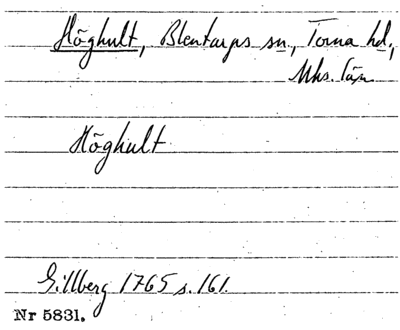 Höghult, Blentarps sn, Torna hd,
Mhs. län
Höghult
Gillberg 1765 s. 161.
Nr 5831.